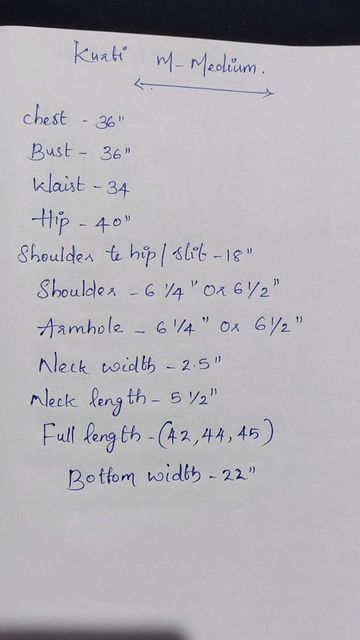 Kurti M-Medium.
chest - 36"
Bust - 36"
Waist - 34
Hip - 40"
Shoulder to hip/slit - 18"
Shoulder - 6 1/4" Or 6 1/2"
Armhole - 6 1/4" Or 6 1/2"
Neck width - 2.5"
Neck length - 5 1/2"
Full length - (42, 44, 45)
Bottom width - 22"